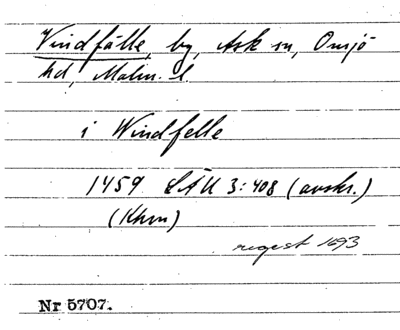 Vindfälle, by, Ask sn, Onsjö
hd, Malm. l.
i Windfelle
1459 LÄU 3:408 (avskr.)
(Khvn)
regest 1693
Nr 5707.